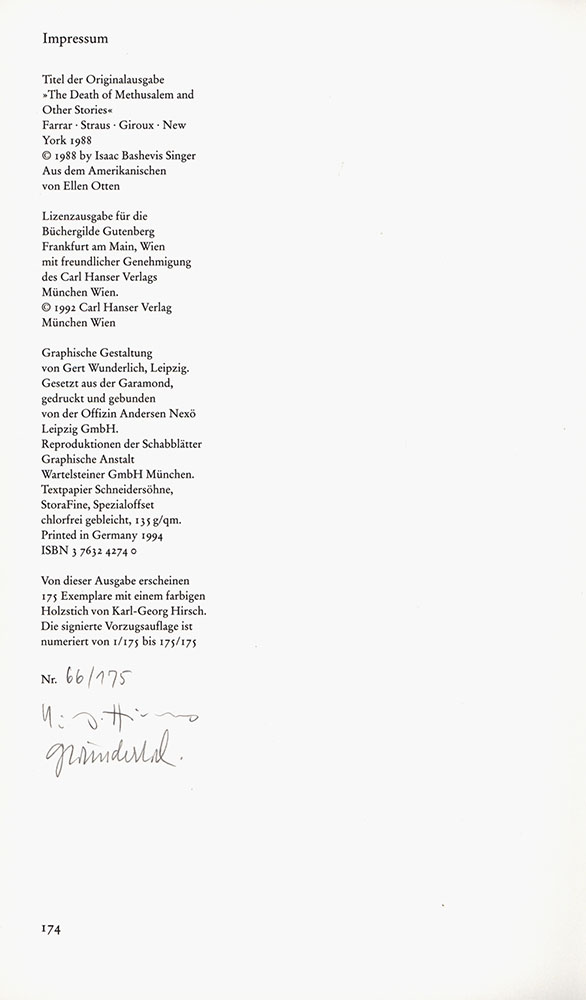 Impressum
Titel der Originalausgabe
»The Death of Methusalem and
Other Stories«
Farrar · Straus · Giroux · New
York 1988
© 1988 by Isaac Bashevis Singer
Aus dem Amerikanischen
von Ellen Otten
Lizenzausgabe für die
Büchergilde Gutenberg
Frankfurt am Main, Wien
mit freundlicher Genehmigung
des Carl Hanser Verlags
München Wien.
© 1992 Carl Hanser Verlag
München Wien
Graphische Gestaltung
von Gert Wunderlich, Leipzig.
Gesetzt aus der Garamond,
gedruckt und gebunden
von der Offizin Andersen Nexö
Leipzig GmbH.
Reproduktionen der Schabblätter
Graphische Anstalt
Wartelsteiner GmbH München.
Textpapier Schneidersöhne,
StoraFine, Spezialoffset
chlorfrei gebleicht, 135 g/qm.
Printed in Germany 1994
ISBN 3 7632 4274 0
Von dieser Ausgabe erscheinen
175 Exemplare mit einem farbigen
Holzstich von Karl-Georg Hirsch.
Die signierte Vorzugsauflage ist
numeriert von 1/175 bis 175/175
Nr. 66/175
174